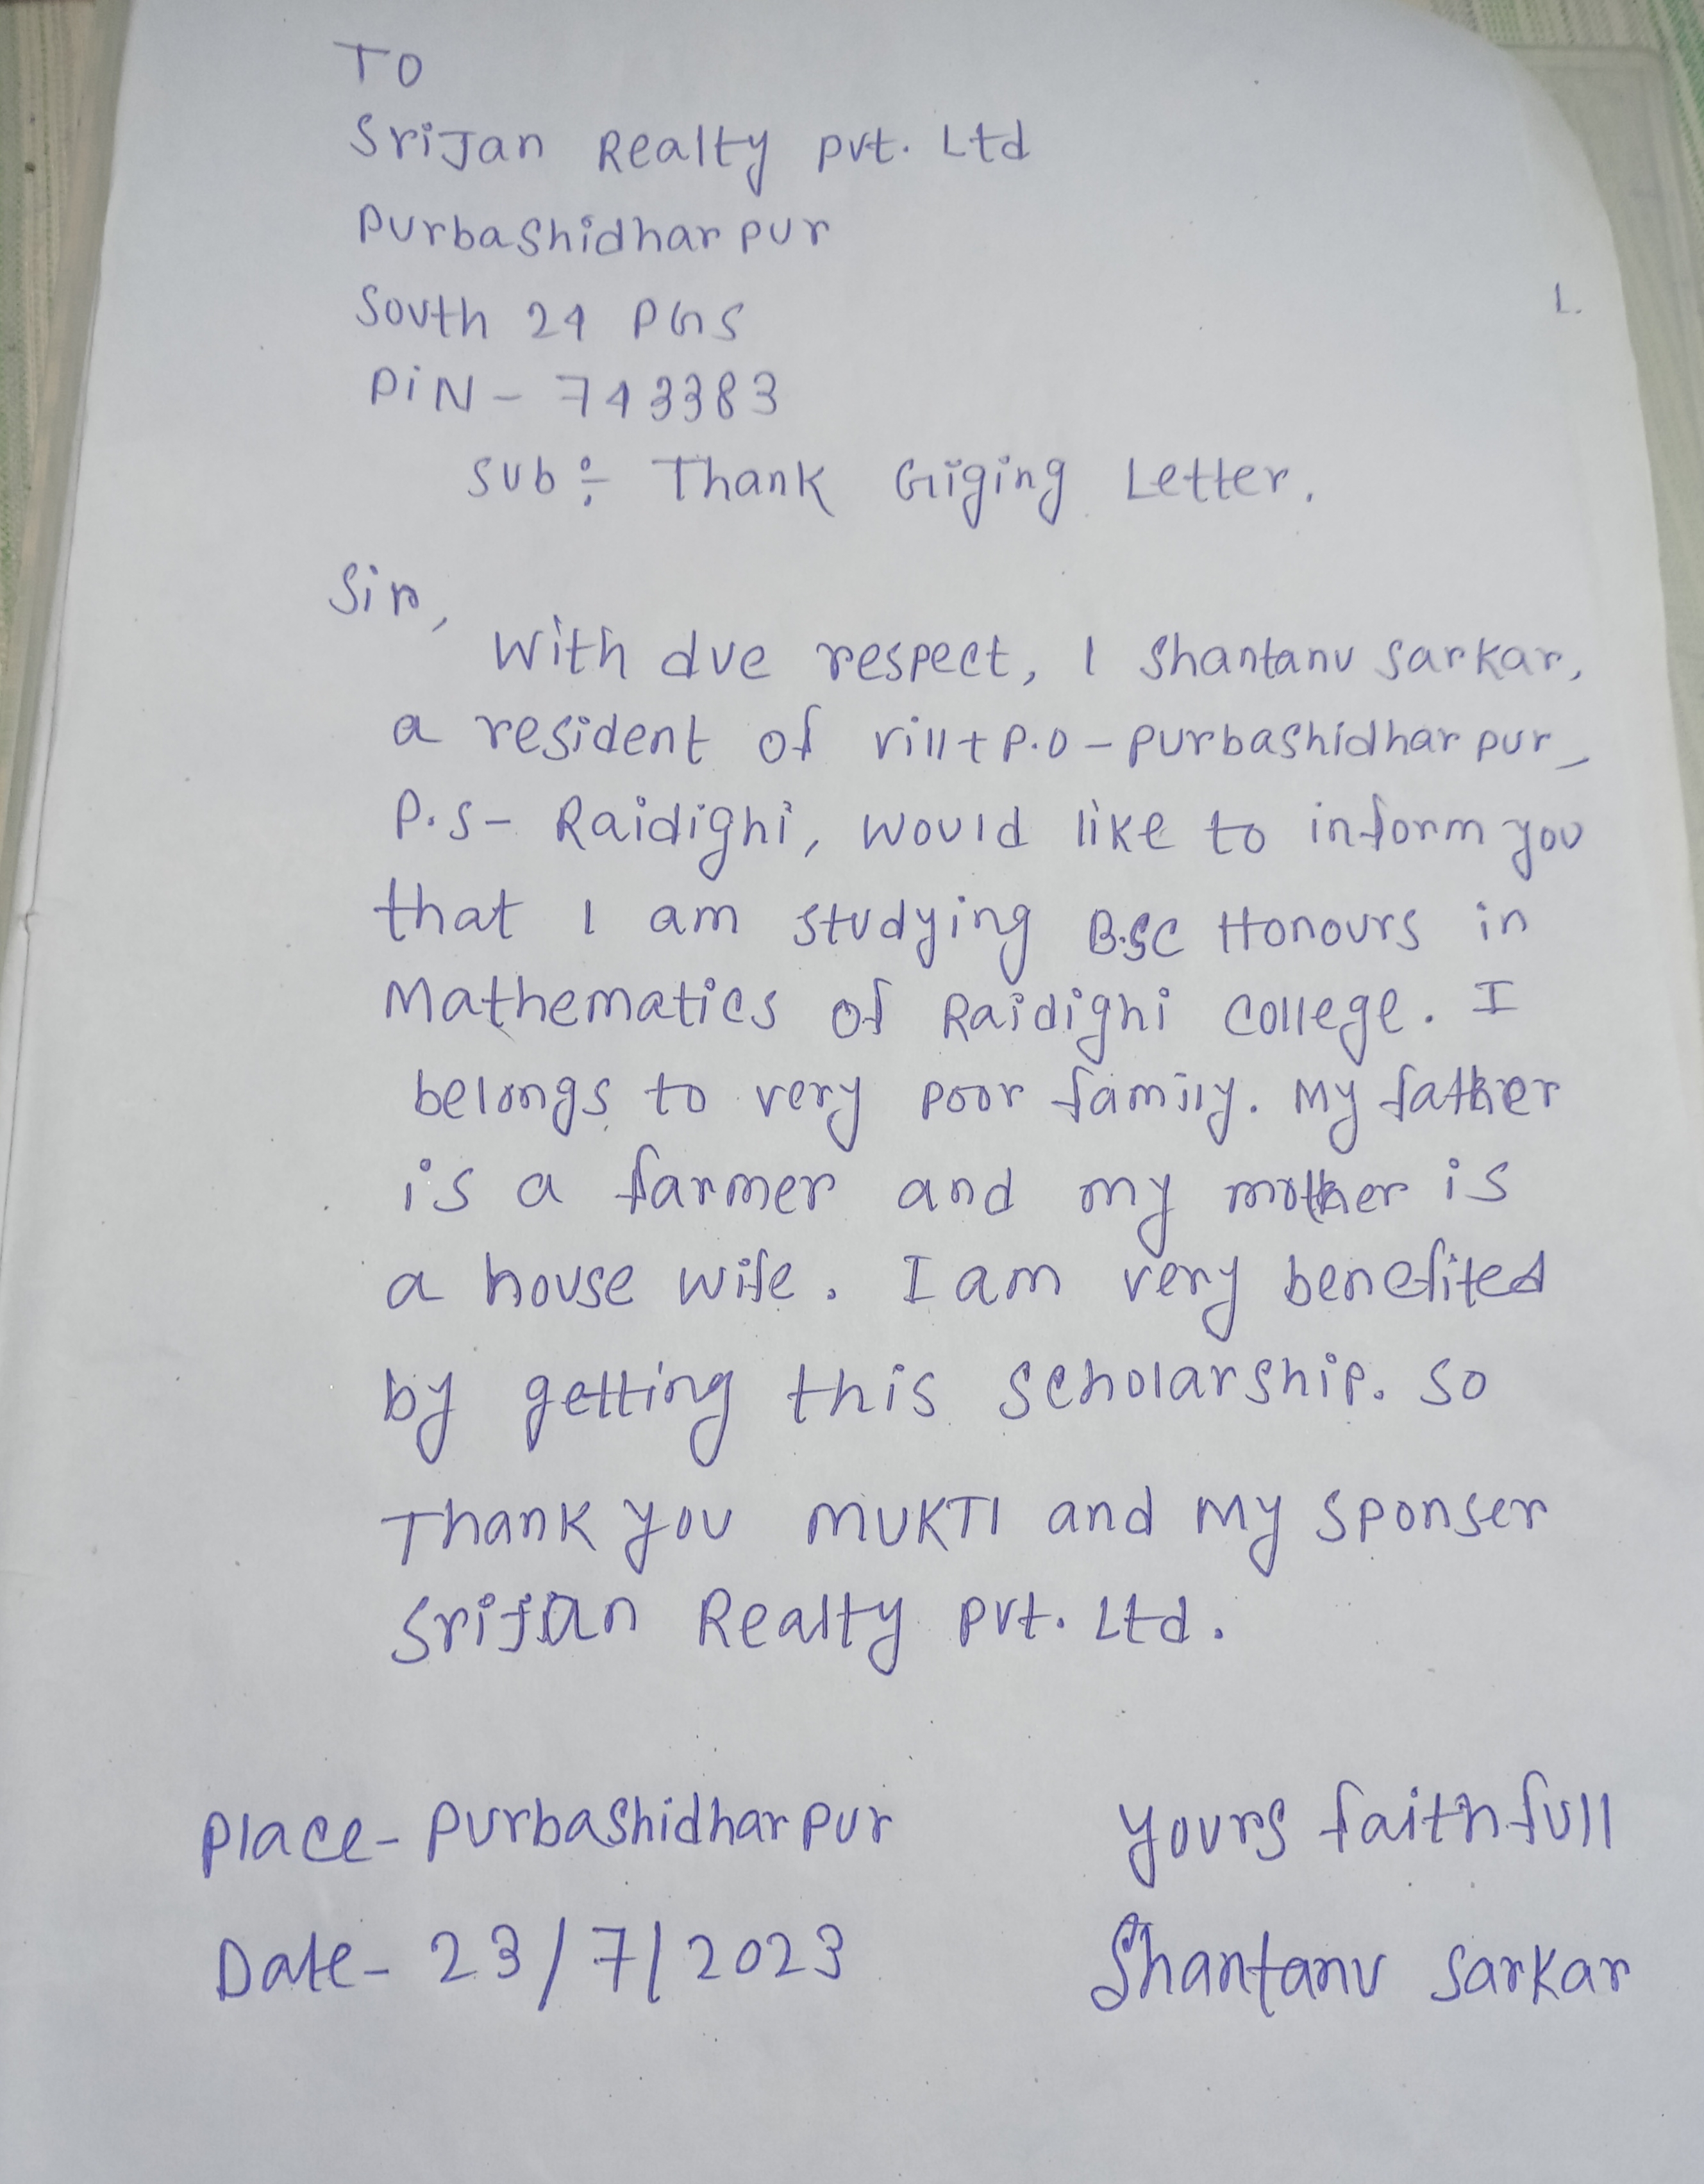 TO
Srijan Realty Pvt. Ltd
Purbashidharpur
South 24 PGS
PiN - 743383
Sub :- Thank Giging Letter.
Sir,
With due respect, I Shantanu Sarkar,
a resident of vill+P.O - Purbashidharpur,
P.S - Raidighi, would like to inform you
that I am studying B.SC Honours in
Mathematics of Raidighi College. I
belongs to very poor family. My father
is a farmer and my mother is
a house wife. I am very benefited
by getting this Scholarship. So
Thank you MUKTI and My Sponser
Srijan Realty Pvt. Ltd.
Place - Purbashidharpur
yours faithfull
Date - 23/7/2023
Shantanu Sarkar